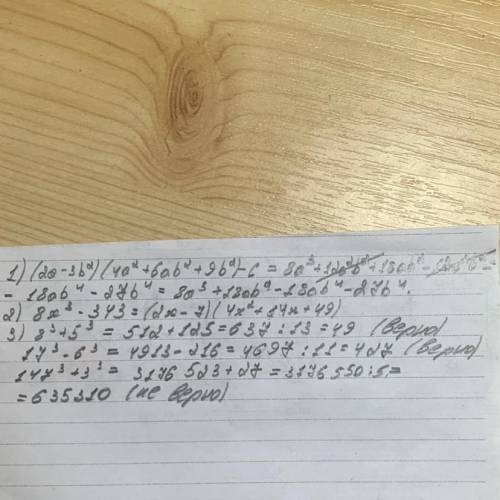 1) (2a-3b²)(4a²+6ab²+9b²)-6 = 8a³+12a²b²+18ab²-12a²b²-
- 18ab⁴-27b⁴= 8a³+18ab²-18ab⁴-27b⁴.
2) 8x³-343=(2x-7)(4x²+14x+49)
3) 8³+5³ = 512+125=637:13=49 (верно)
17³-6³ = 4913-216=4697:11=427 (верно)
147³+3³ = 3176523+27=3176550:5=
=635310 (не верно)